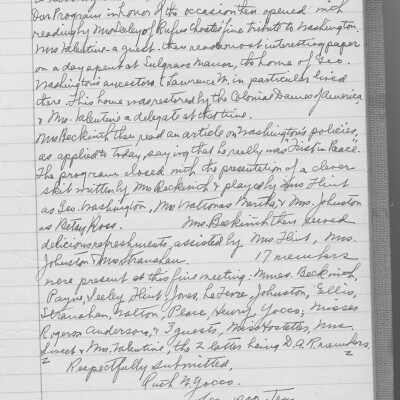 Our Program in honor of the occasion then opened with
reading by Mrs Seeley of Rufus Choate's fine tribute to Washington.
Mrs Valentine a guest then read a most interesting paper
on a day spent at Sulgrave Manor, the home of Geo.
Washington's ancestors & Lawrence W. in particular lived
there. This home was restored by the Colonial Dames of America
& Mrs. Valentine a delegate at that time.
Mrs Beckwith then read an article on Washington's policies,
as applied to today, saying that he really was "First in Peace".
The program closed with the presentation of a clever
skit written by Mrs Beckwith & played by Mrs Flint
as Geo. Washington, Mrs. Walton as Martha & Mrs. Johnston
as Betsy Ross. Mrs. Beckwith then served
delicious refreshments, assisted by Mrs Flint, Mrs.
Johnston & Mrs Stranahan. 17 members
were present at this fine meeting. Mmes. Beckwith,
Payne, Seeley, Flint, Jones, LeFevre, Johnston, Ellis,
Stranahan, Walton, Pease, Henry, Yocco; Misses
Rogers Anderson, & 3 guests, Miss Hostetter, Mrs.
& Mrs. Valentine, the 2 latter being D.A.R. members.
Respectfully submitted,
Ruth W. Yocco.